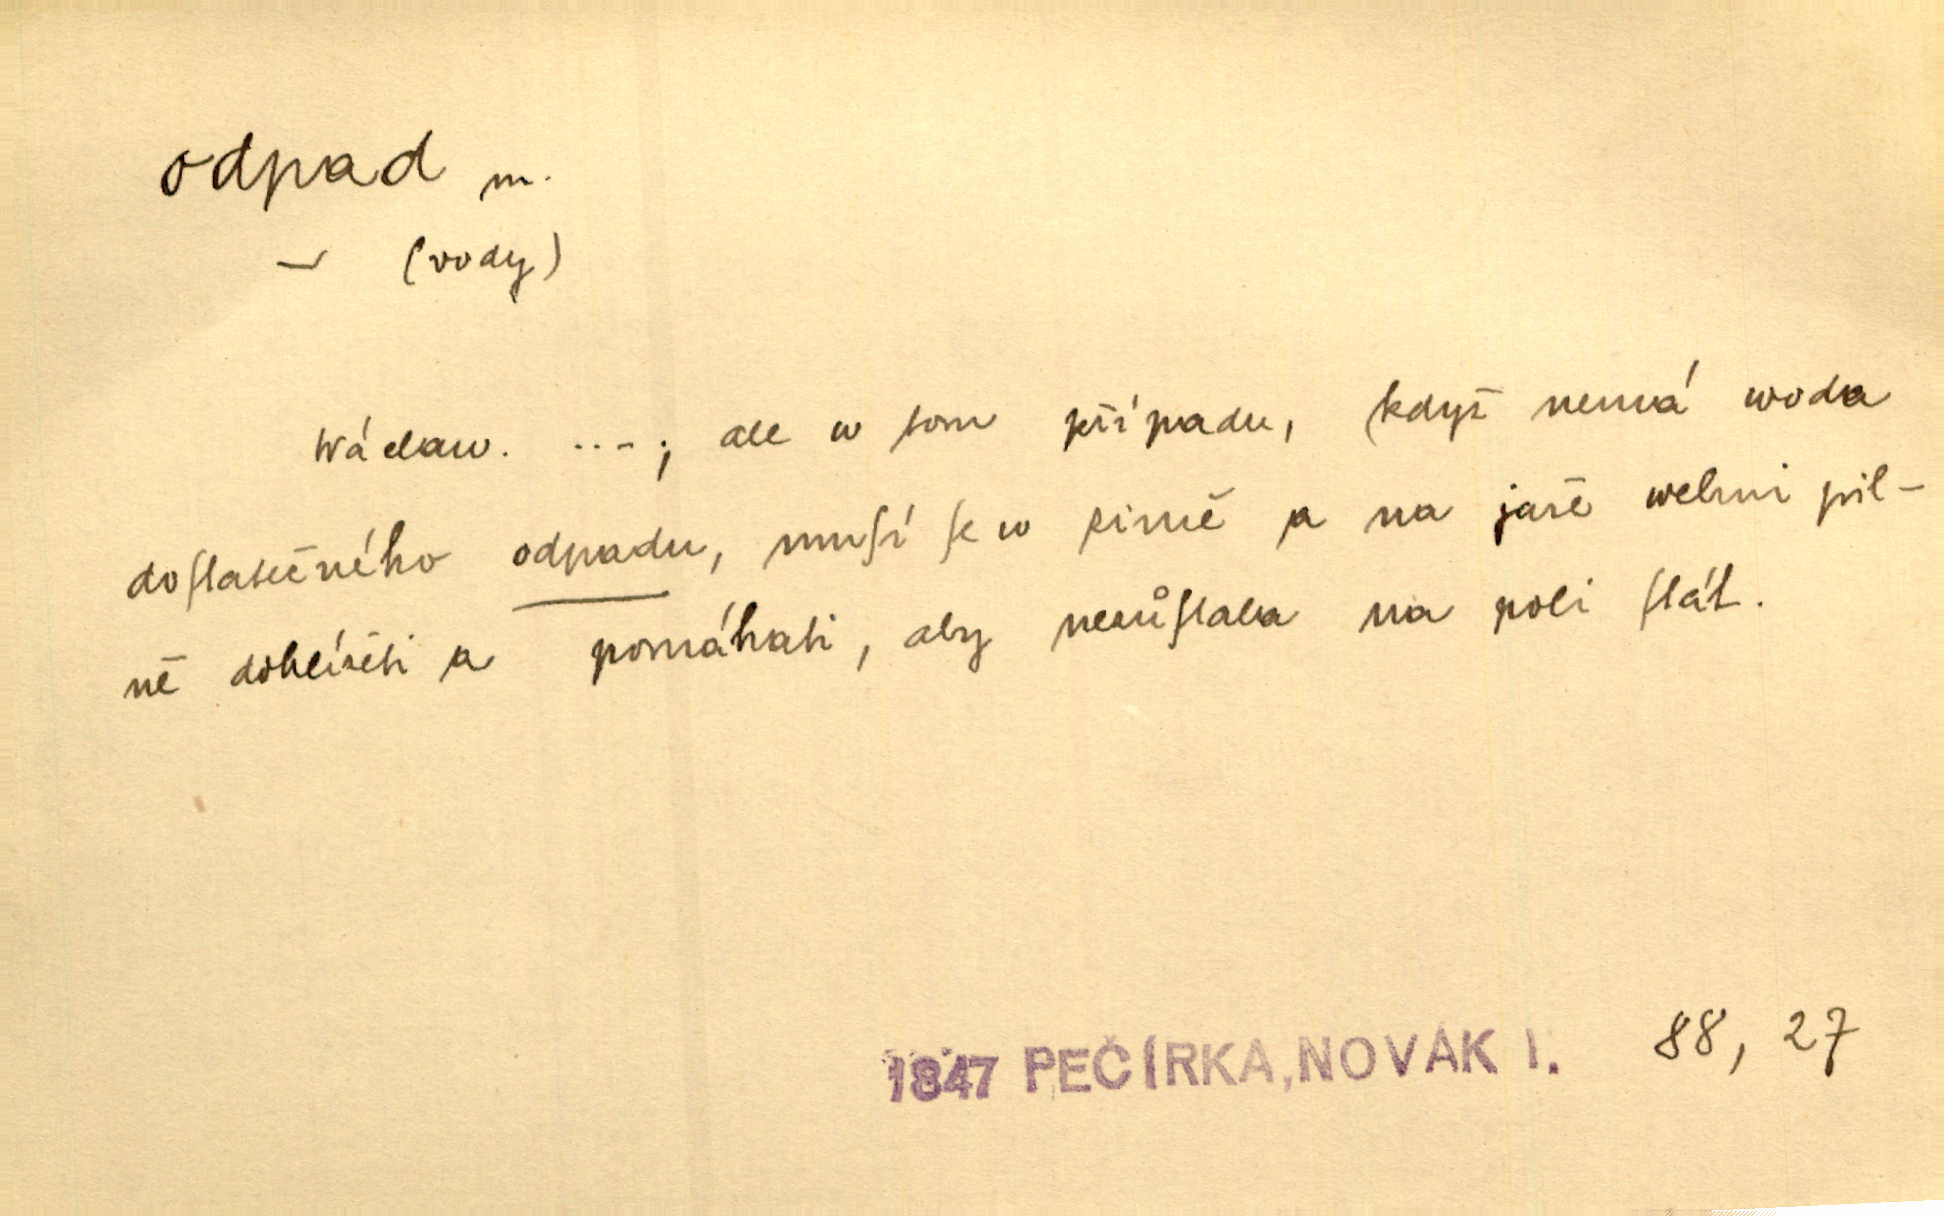 odpad m.
— (vody)
Wáclaw. ...; ale w tom případu, když nemá woda
doſtatečného odpadu, muſí ſe w zimě a na jaře welmi pil-
ně dohlížeti a pomáhati, aby nezůſtala na poli ſtát.
1847 PEČÍRKA, NOVÁK I. 88, 27